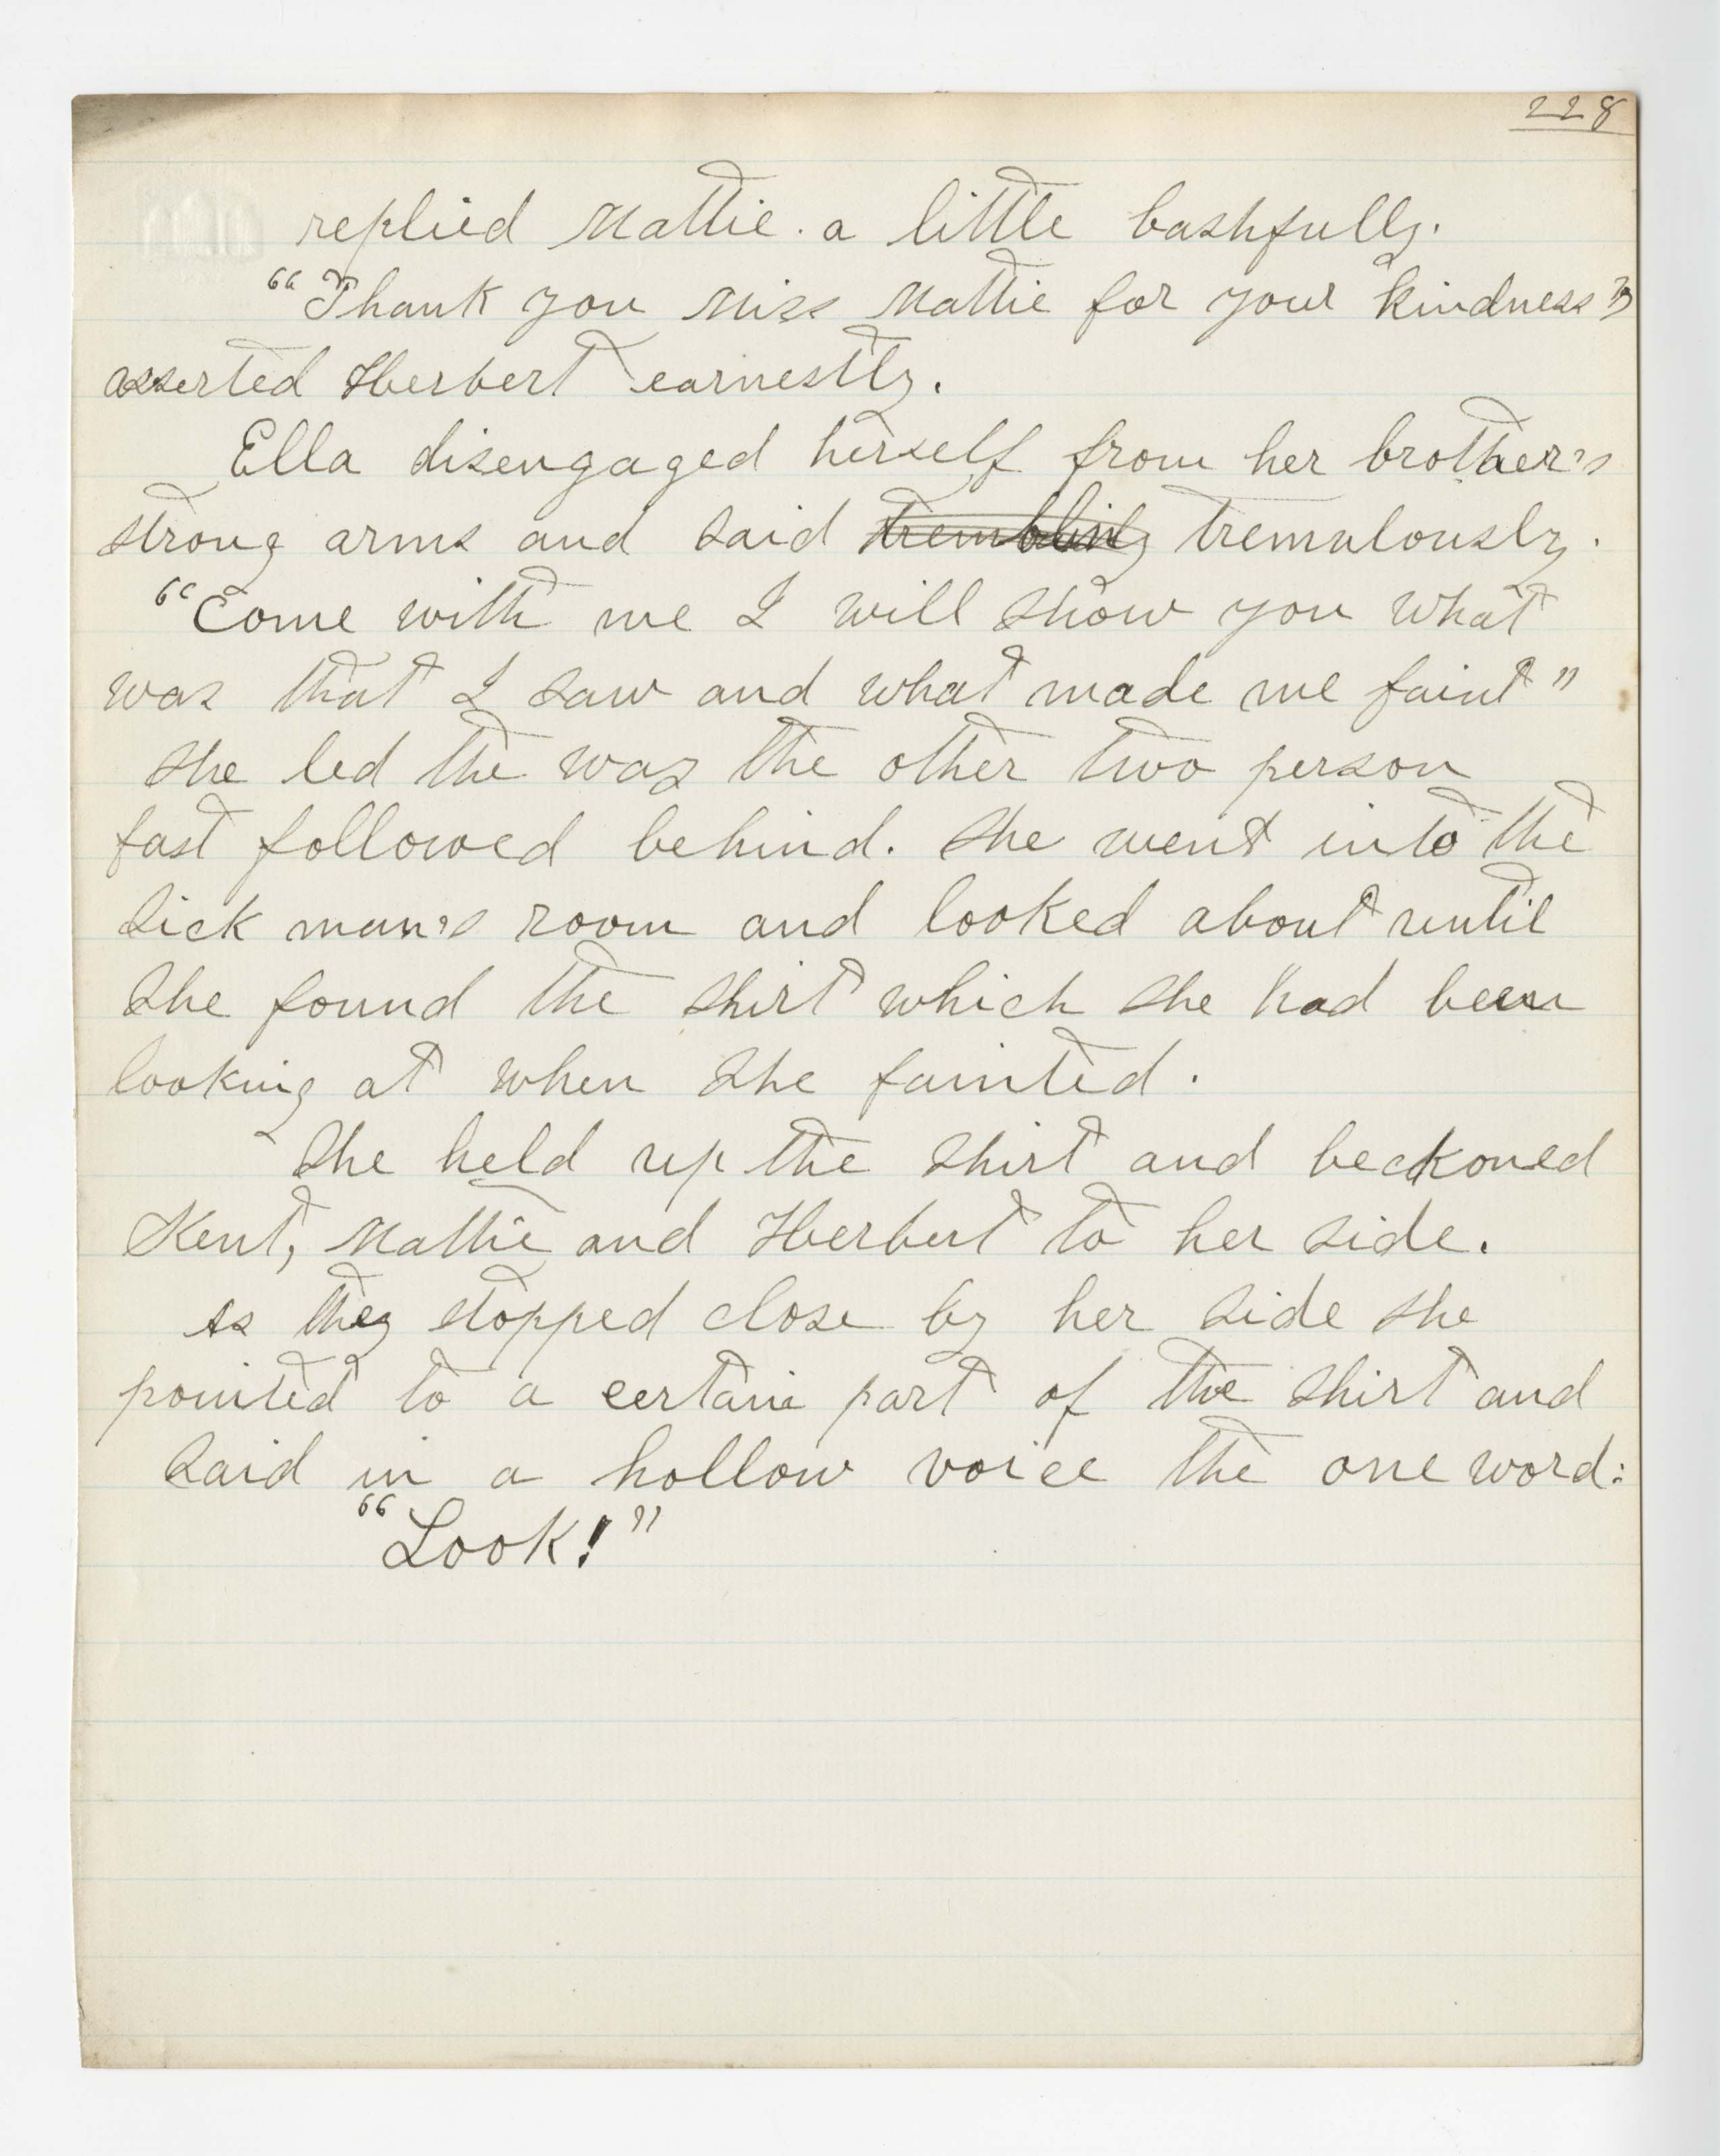 228
replied Mattie. a little bashfully.
"Thank you Miss Mattie for your kindness"
asserted Herbert earnestly.
Ella disengaged herself from her brother's
strong arms and said trembling tremulously.
"Come with me I will show you what
was that I saw and what made me faint"
She led the way the other two person
fast followed behind. She went into the
sick man's room and looked about until
she found the shirt which she had been
looking at when she fainted.
She held up the shirt and beckoned
Kent, Mattie and Herbert to her side.
As they stopped close by her side she
pointed to a certain part of the shirt and
said in a hollow voice the one word:
"Look!"